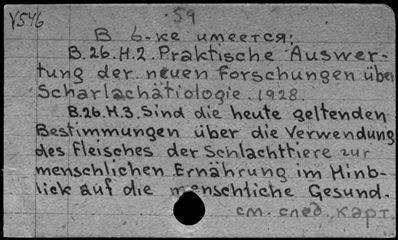 V546
59
В б-ке имеется:
B.26.H.2. Praktische Auswer-
tung der neuen Forschungen über
Scharlachätiologie. 1928.
B.26.H.3. Sind die heute geltenden
Bestimmungen über die Verwendung
des Fleisches der Schlachttiere zur
menschlichen Ernährung im Hinb-
lick auf die menschliche Gesund-
см. след. карт.